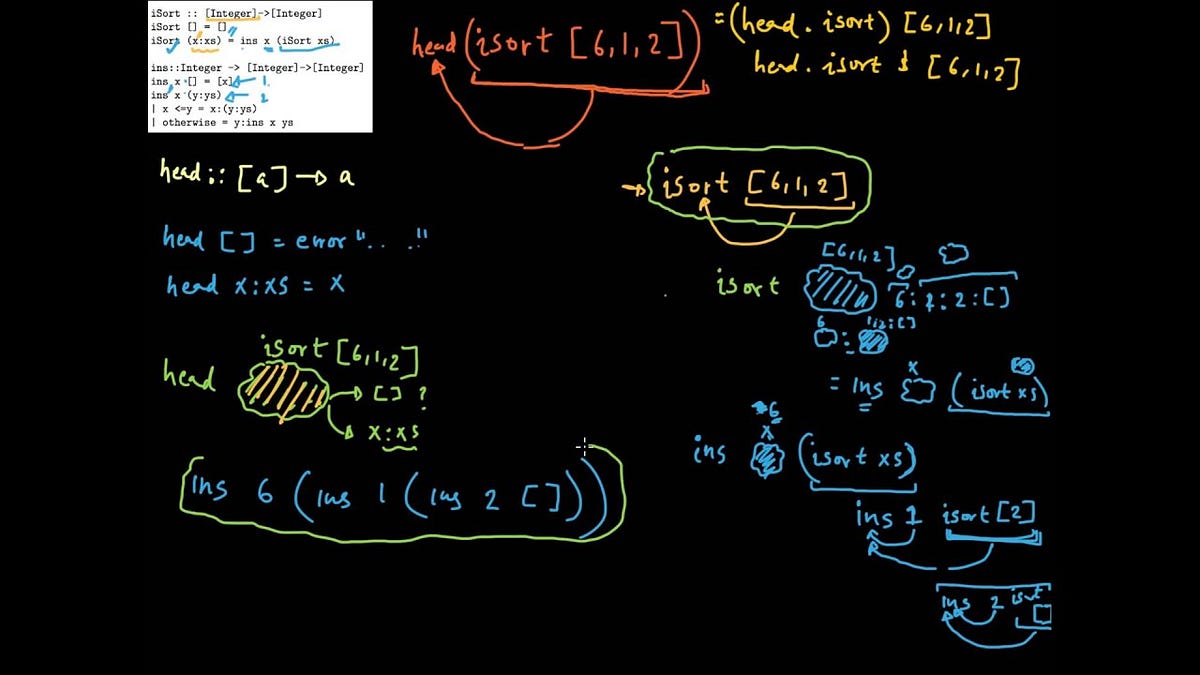 iSort :: [Integer]->[Integer]
iSort [] = []
iSort (x:xs) = ins x (iSort xs)
ins::Integer -> [Integer]->[Integer]
ins x [] = [x] 1.
ins x (y:ys) 2
| x <=y = x:(y:ys)
| otherwise = y:ins x ys
head (isort [6,1,2])
= (head . isort) [6,1,2]
head . isort $ [6,1,2]
head :: [a] → a
head [] = error "....."
head x:xs = x
isort [6,1,2]
head
[] ?
x:xs
ins 6 (ins 1 (ins 2 []))
isort [6,1,2]
[6,1,2]
isort 6:1:2:[]
6 : 1,2:[]
x
= ins (isort xs)
6
x
ins (isort xs)
ins 1 isort [2]
ins 2 isort
[]